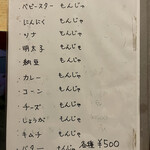 ・ベビースター もんじゃ
・にんにく もんじゃ
・ツナ もんじゃ
・明太子 もんじゃ
・納豆 もんじゃ
・カレー もんじゃ
・コーン もんじゃ
・チーズ もんじゃ
・じょうが もんじゃ
・キムチ もんじゃ
・バター もんじゃ 各種 ¥500